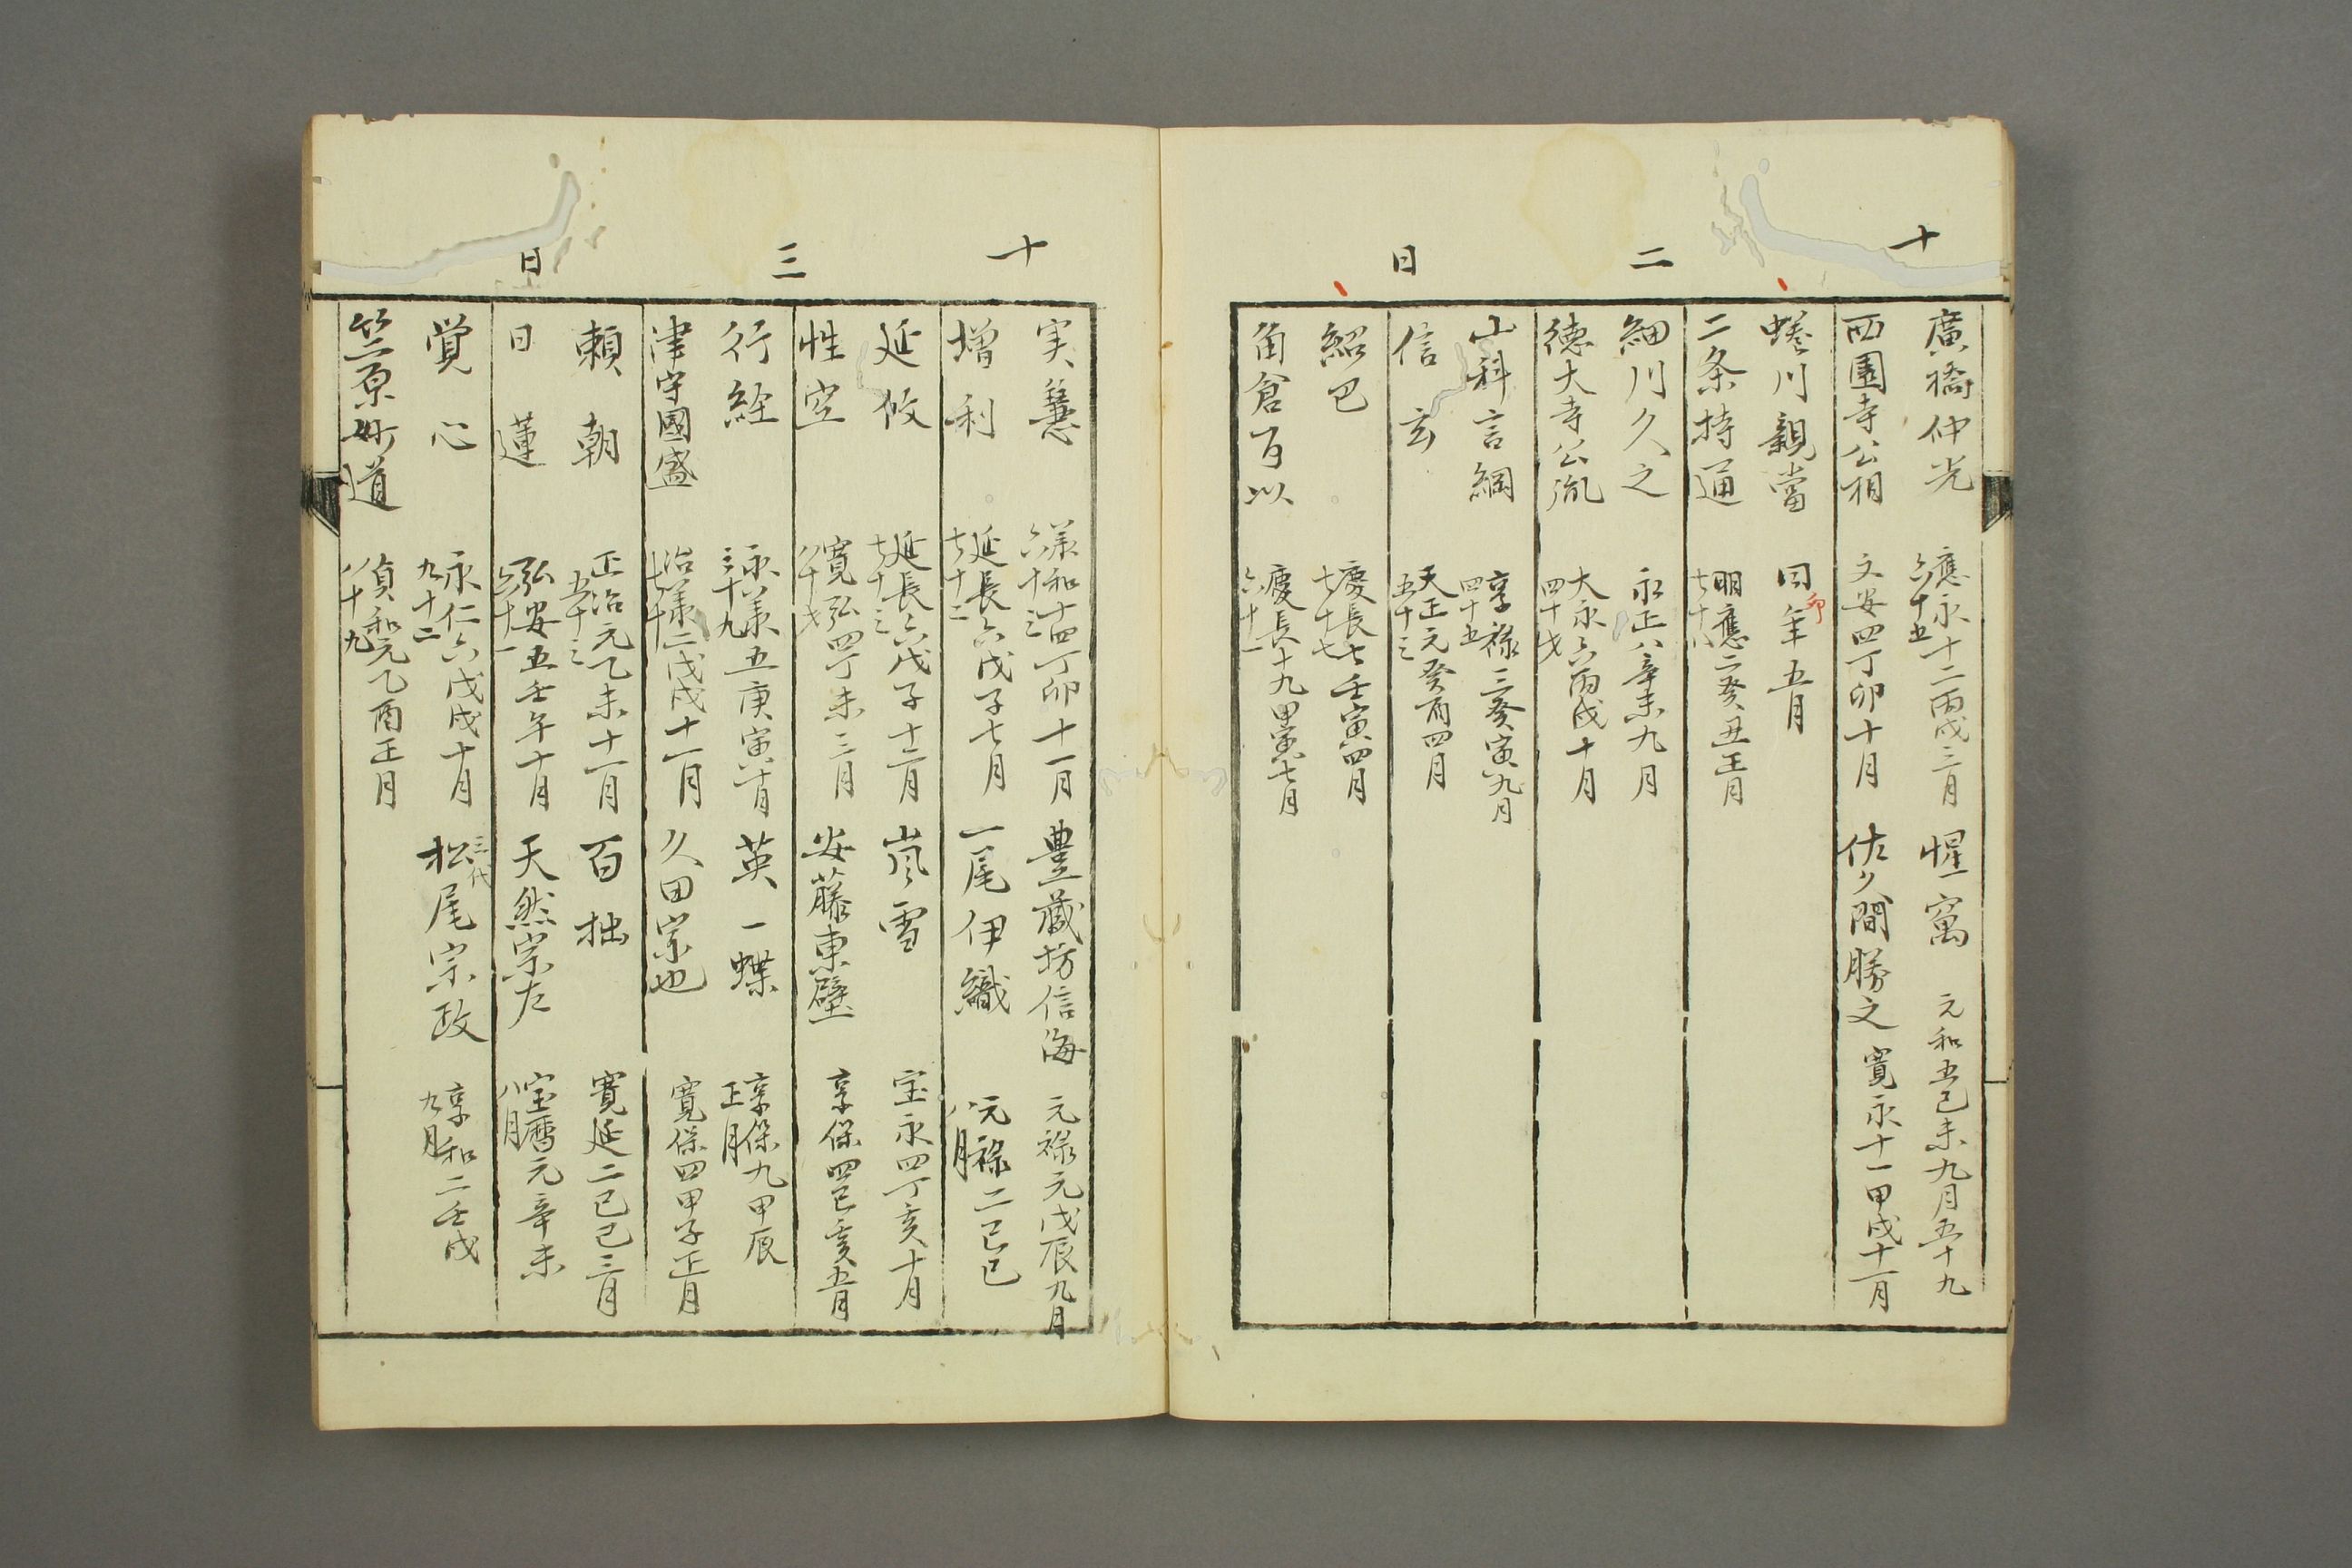 十二日
廣橋仲光 應永十二丙戌二月 六十五
惺窩 元和五己未九月五十九
西園寺公相 文安四丁卯十月
佐久間勝之 寛永十一甲戌十一月
蜷川親當 同年五月
卯
二条持通 明應二癸丑正月 七十八
細川久之 永正八辛未九月
徳大寺公胤 大永六丙戌十月 四十才
山科言綱 享禄三庚寅九月 四十五
信玄 天正元癸酉四月 五十三
紹巴 慶長七壬寅四月 七十七
角倉了以 慶長十九甲寅七月 六十一
十三日
実慧 承和十四丁卯十一月 六十三
豊蔵坊信海 元禄元戊辰九月
増利 延長六戊子七月 七十二
一尾伊織 元禄二己巳 八月
延攸 延長六戊子十二月 七十三
嵐雪 宝永四丁亥十月
性空 寛弘四丁未三月 八十才
安藤東壁 享保四己亥五月
行経 永承五庚寅十月 三十九
英一蝶 享保九甲辰 正月
津守國盛 治承二戊戌十一月 七十
久田宗也 寛保四甲子正月
頼朝 正治元乙未十一月 五十三
百拙 寛延二己巳三月
日蓮 弘安五壬午十月 六十一
天然宗左 宝暦元辛未 八月
覚心 永仁六戊戌十月 九十二
三代
松尾宗政 享和二壬戌 九月
竺原妙道 貞和元乙酉正月 八十九